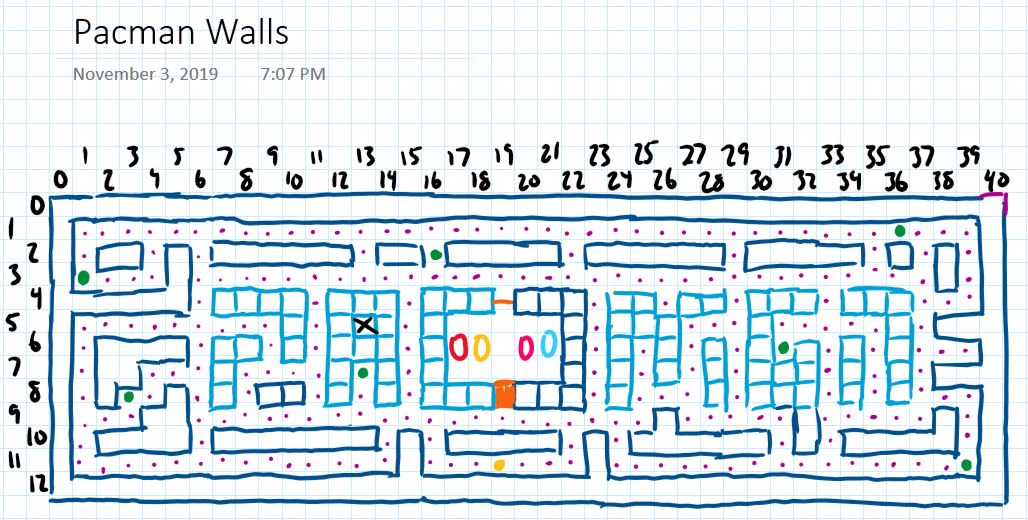 Pacman Walls
November 3, 2019 7:07 PM
1 3 5 7 9 11 13 15 17 19 21 23 25 27 29 31 33 35 37 39
0 2 4 6 8 10 12 14 16 18 20 22 24 26 28 30 32 34 36 38 40
0
1
2
3
4
5
6
7
8
9
10
11
12